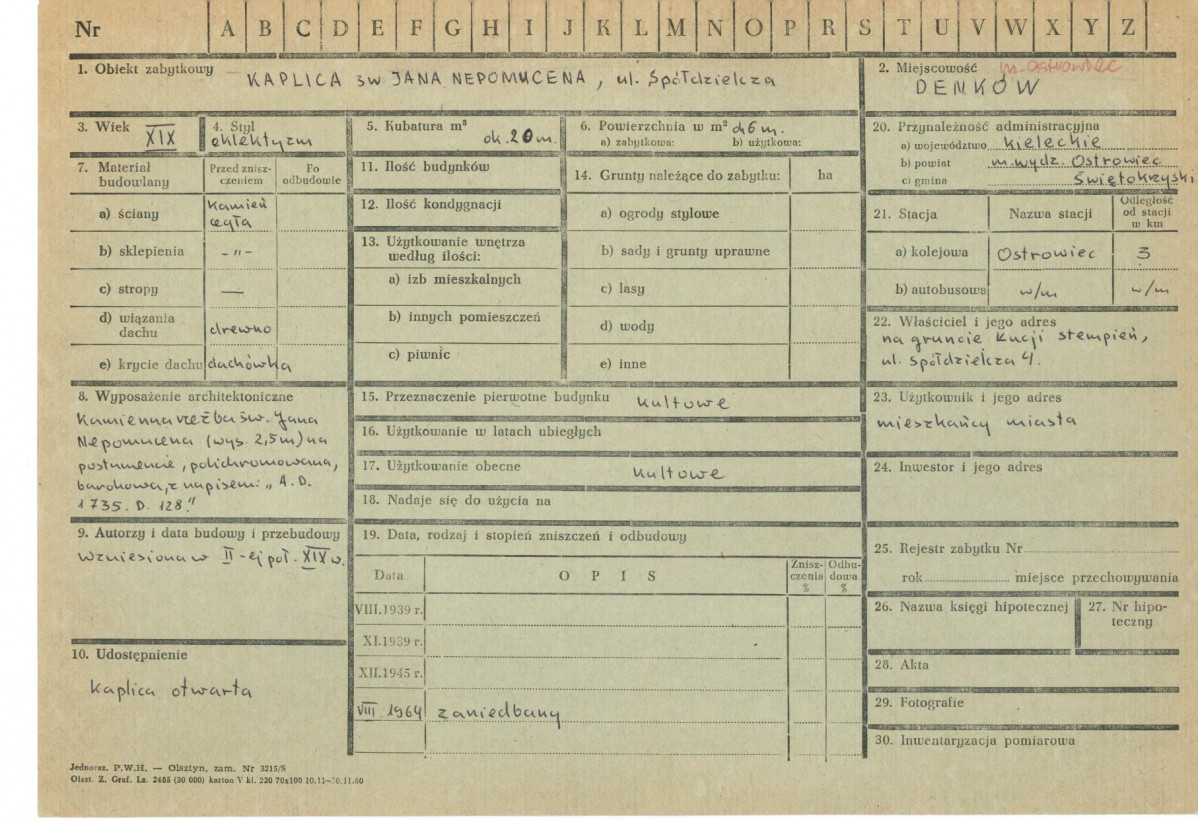 Nr A B C D E F G H I J K L M N O P R S T U V W X Y Z
1. Obiekt zabytkowy
KAPLICA ŚW JANA NEPOMUCENA, ul. Spółdzielcza
2. Miejscowość m. Ostrowiec
DENKÓW
3. Wiek XIX
4. Styl
eklektyzm
5. Kubatura m³
ok. 20 m.
6. Powierzchnia w m² ok 6 m.
a) zabytkowa: b) użytkowa:
20. Przynależność administracyjna
a) województwo kieleckie
b) powiat m. wydz. Ostrowiec
c) gmina Świętokrzyski
7. Materiał budowlany
Przed zniszczeniem
Po odbudowie
a) ściany kamień
cegła
b) sklepienia -"-
c) stropy —
d) wiązania dachu drewno
e) krycie dachu dachówka
11. Ilość budynków
12. Ilość kondygnacji
13. Użytkowanie wnętrza
według ilości:
a) izb mieszkalnych
b) innych pomieszczeń
c) piwnic
14. Grunty należące do zabytku: ha
a) ogrody stylowe
b) sady i grunty uprawne
c) lasy
d) wody
e) inne
21. Stacja Nazwa stacji Odległość od stacji w km
a) kolejowa Ostrowiec 3
b) autobusowa w/m w/m
22. Właściciel i jego adres
na gruncie Łucji Stempień,
ul. Spółdzielcza 4.
8. Wyposażenie architektoniczne
Kamienna rzeźba św. Jana
Nepomucena (wys. 2,5 m) na
postumencie, polichromowana,
barokowa, z napisem: „A.D.
1735. D. 128."
15. Przeznaczenie pierwotne budynku kultowe
16. Użytkowanie w latach ubiegłych
17. Użytkowanie obecne kultowe
18. Nadaje się do użycia na
23. Użytkownik i jego adres
mieszkańcy miasta
24. Inwestor i jego adres
9. Autorzy i data budowy i przebudowy
Wzniesiona w II-ej poł. XIX w.
10. Udostępnienie
Kaplica otwarta
19. Data, rodzaj i stopień zniszczeń i odbudowy
Data OPIS Zniszczenia % Odbudowa %
VIII.1939 r.
XI.1939 r.
XII.1945 r.
VIII 1964 zaniedbany
25. Rejestr zabytku Nr
rok miejsce przechowywania
26. Nazwa księgi hipotecznej
27. Nr hipoteczny
28. Akta
29. Fotografie
30. Inwentaryzacja pomiarowa
Jednoraz. P.W.H. — Olsztyn, zam. Nr 3215/S
Olszt. Z. Graf. Lz. 2485 (30 000) karton V kl. 220 70x100 10.11—30.11.60